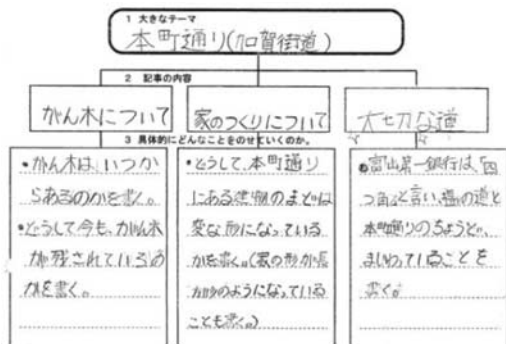 1 大きなテーマ
本町通り(加賀街道)
2 記事の内容
がん木について
家のつくりについて
大切な道
3 具体的にどんなことをのせていくのか。
・がん木は、いつか
らあるのかを書く。
・どうして今も、がん木
が残されているの
かを書く。
・どうして、本町通り
にある建物のまどは
変な形になっている
かを書く。(家の形が長
のようになっている
ことも書く。)
・富山第一銀行は、「四
つ角」と言い、塩の道と
本町通りのちょうど、
まじわっていることを
書く。